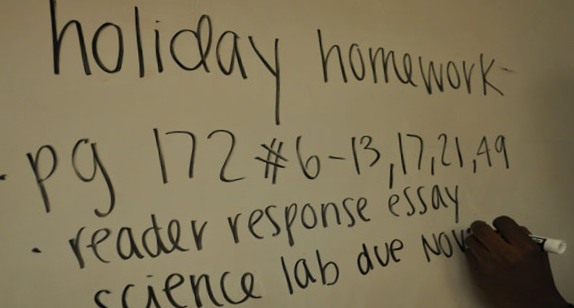 holiday homework-
· pg 172 #6-13, 17, 21, 49
· reader response essay
science lab due Nov